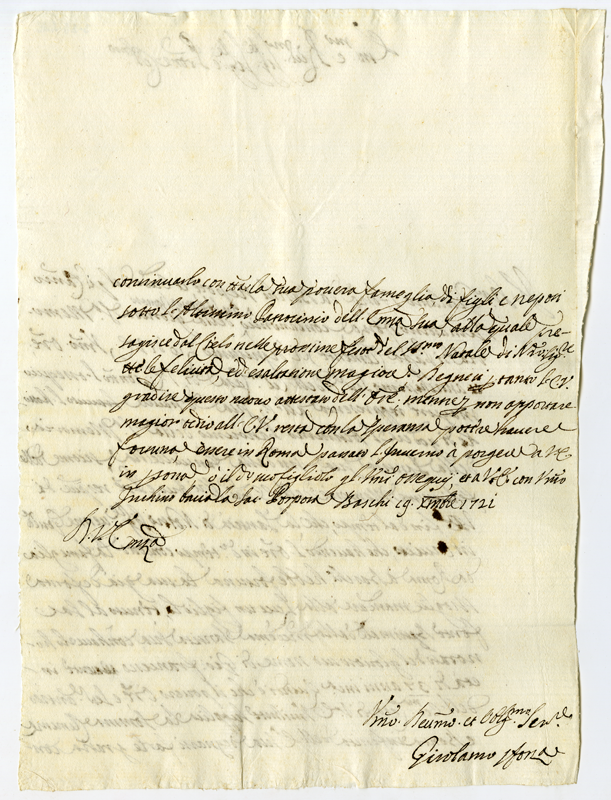 continuarlo con tta la sua povera fameglia di figli e nepoti
sotto l'Altissimo Patrocinio dell' Emza Sua, alla quale pre-
sagisce dal Cielo nelle prossime feste del SSmo Natale di
tte le felicità, ed esaltazione magiore e Degnisi, tanto l' E.V.
gradire questo nuovo attestato dell' mentre non apportare
magior tedio all' E.V. resta con la speranza potere havere
fortuna essere in Roma passato l'inverno à porgere a V.E.
in psona ò il suo figliolo gl' Umi ossequij, et a V.E. con Umo
Inchino bacio la Sac. Porpora Baschi 19. Xmbre 1721
D. V. Emza
Umo. Devmo. et Oblgmo Serre
Girolamo Sforza